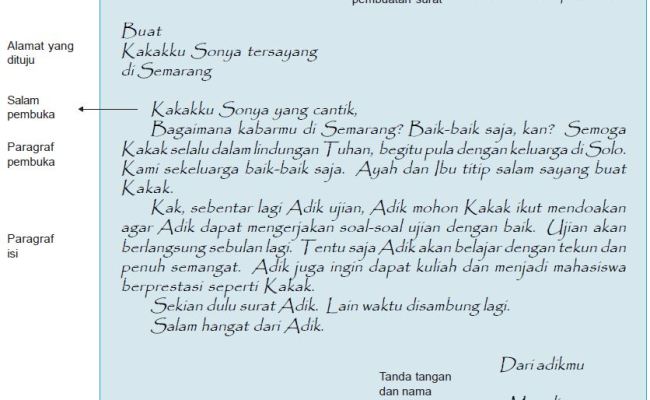 pembuatan surat
Buat
Alamat yang
dituju
Kakakku Sonya tersayang
di Semarang
Salam
pembuka
Kakakku Sonya yang cantik,
Paragraf
pembuka
Bagaimana kabarmu di Semarang? Baik-baik saja, kan? Semoga
Kakak selalu dalam lindungan Tuhan, begitu pula dengan keluarga di Solo.
Kami sekeluarga baik-baik saja. Ayah dan Ibu titip salam sayang buat
Kakak.
Paragraf
isi
Kak, sebentar lagi Adik ujian, Adik mohon Kakak ikut mendoakan
agar Adik dapat mengerjakan soal-soal ujian dengan baik. Ujian akan
berlangsung sebulan lagi. Tentu saja Adik akan belajar dengan tekun dan
penuh semangat. Adik juga ingin dapat kuliah dan menjadi mahasiswa
berprestasi seperti Kakak.
Sekian dulu surat Adik. Lain waktu disambung lagi.
Salam hangat dari Adik.
Dari adikmu
Tanda tangan
dan nama